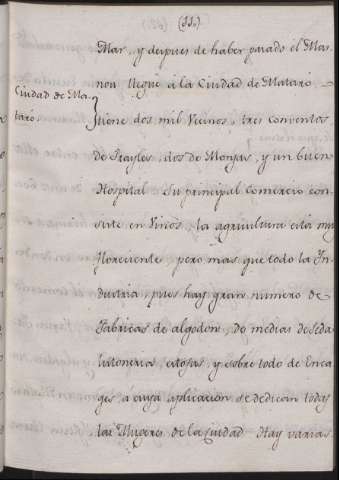 (11.)
Mar, y despues de haber pasado el Mas-
nou llegue á la Ciudad de Mataró.
Ciudad de Ma-
taró.
tiene dos mil Vecinos, tres conventos
de Frayles, dos de Monjas, y un buen
Hospital. Su principal comercio con-
siste en Vinos, la agricultura está muy
floreciente, pero mas que todo la In-
dustria, pues hay gran numero de
Fabricas de algodon, de medias de seda
y sobre todo de Enca-
ges, á cuya aplicacion se dedican todas
las Mugeres de la Ciudad. Hay varias